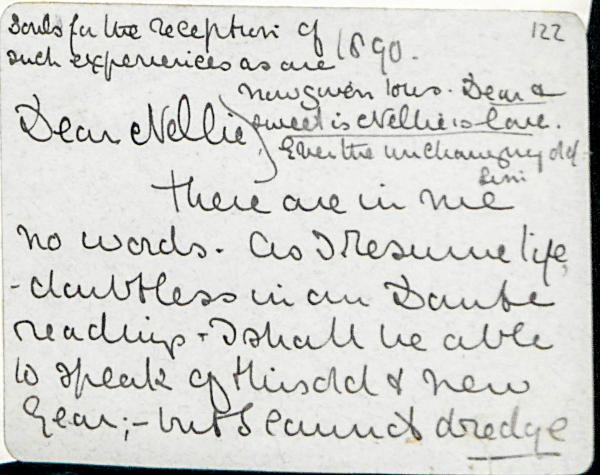 souls for the reception of
such experiences as are
1890.
122
now given to us. Dear &
sweet is Nellie's love.
Ever the unchanging old
Simi
Dear Nellie,
There are in me
no words. As I resume life,
- doubtless in an Dante
readings - I shall be able
to speak of this old & new
Year; - but I cannot dredge